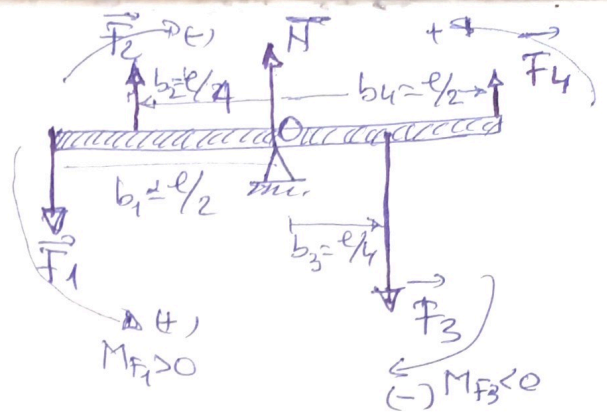 F₂ (-)
N
+
F₄
b₂=ℓ/4
b₄=ℓ/2
O
b₁=ℓ/2
b₃=ℓ/4
F₁
F₃
(+)
M_F₁>0
(-) M_F₃<0